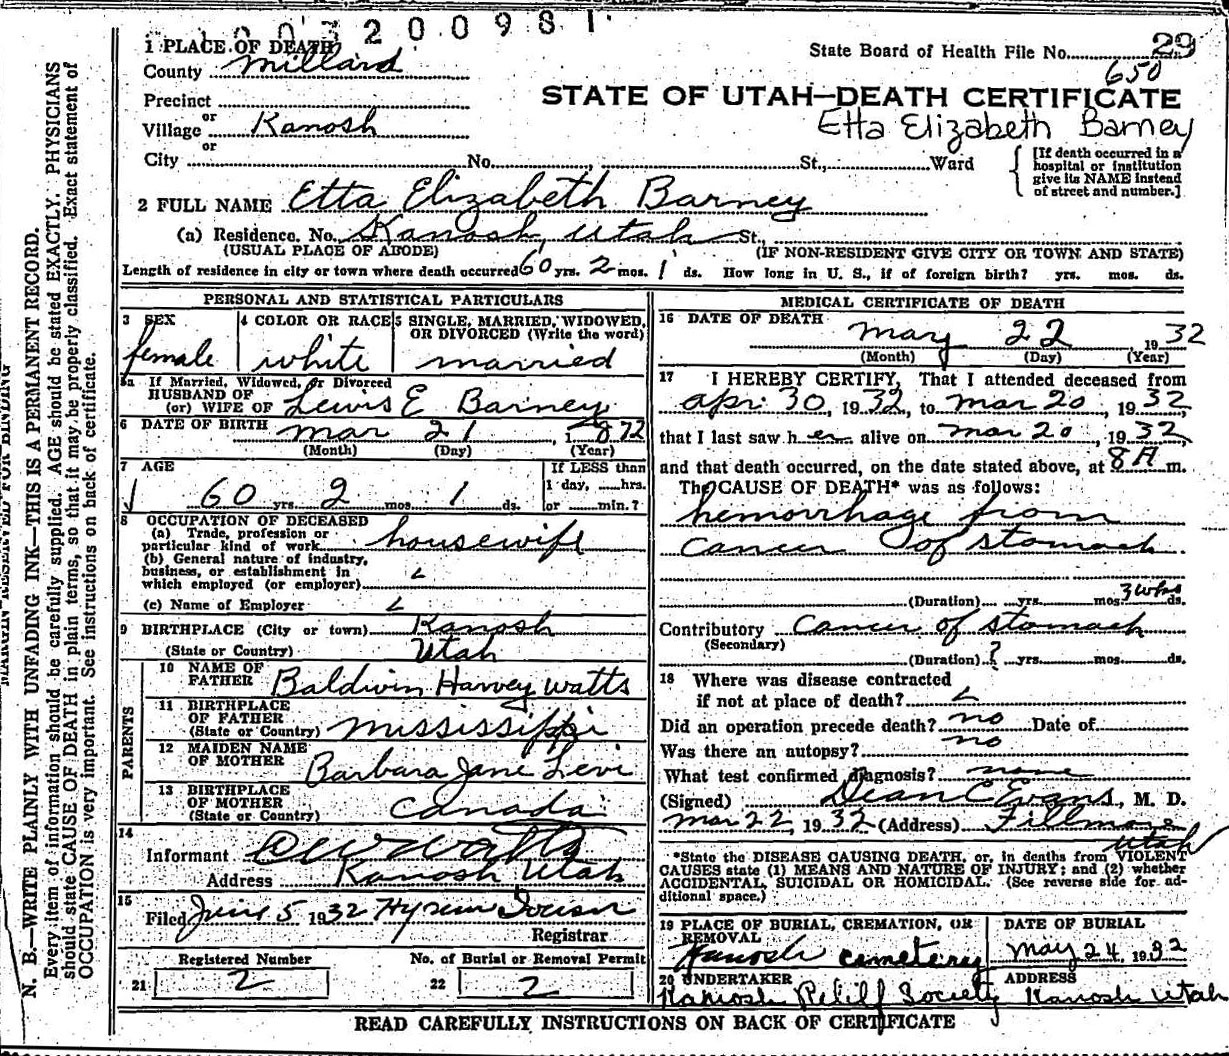 0 0 3 2 0 0 9 8 1
1 PLACE OF DEATH
County Millard
Precinct
or
Village Kanosh
or
City No. St., Ward
State Board of Health File No. 29
650
STATE OF UTAH—DEATH CERTIFICATE
Etta Elizabeth Barney
[If death occurred in a
hospital or institution
give its NAME instead
of street and number.]
2 FULL NAME Etta Elizabeth Barney
(a) Residence. No. Kanosh, Utah St.,
(USUAL PLACE OF ABODE) (IF NON-RESIDENT GIVE CITY OR TOWN AND STATE)
Length of residence in city or town where death occurred 60 yrs. 2 mos. 1 ds. How long in U. S., if of foreign birth? yrs. mos. ds.
PERSONAL AND STATISTICAL PARTICULARS
3 SEX
female
4 COLOR OR RACE
white
5 SINGLE, MARRIED, WIDOWED,
OR DIVORCED (Write the word)
married
5a If Married, Widowed, or Divorced
HUSBAND OF
(or) WIFE OF Lewis E Barney
6 DATE OF BIRTH mar 21, 1872
(Month) (Day) (Year)
7 AGE
60 yrs. 2 mos. 1 ds.
If LESS than
1 day, hrs.
or min.?
8 OCCUPATION OF DECEASED
(a) Trade, profession or
particular kind of work housewife
(b) General nature of industry,
business, or establishment in
which employed (or employer)
(c) Name of Employer
9 BIRTHPLACE (City or town) Kanosh
(State or Country) Utah
PARENTS
10 NAME OF
FATHER Baldwin Harvey Watts
11 BIRTHPLACE
OF FATHER
(State or Country) Mississippi
12 MAIDEN NAME
OF MOTHER Barbara Jane Levi
13 BIRTHPLACE
OF MOTHER
(State or Country) Canada
14
Informant Watts
Address Kanosh Utah
15
Filed June 5 1932 Hyrum
Registrar
Registered Number
21 2
No. of Burial or Removal Permit
22 2
MEDICAL CERTIFICATE OF DEATH
16 DATE OF DEATH
May 22, 1932
(Month) (Day) (Year)
17 I HEREBY CERTIFY, That I attended deceased from
apr 30, 1932, to Mar 20, 1932,
that I last saw her alive on Mar 20, 1932,
and that death occurred, on the date stated above, at 8 A m.
The CAUSE OF DEATH* was as follows:
hemorrhage from
cancer of stomach
(Duration) yrs. mos. 3 wks ds.
Contributory Cancer of stomach
(Secondary)
(Duration) ? yrs. mos. ds.
18 Where was disease contracted
if not at place of death?
Did an operation precede death? no Date of
Was there an autopsy? no
What test confirmed diagnosis? none
(Signed) Dean C Evans, M. D.
Mar 22, 1932 (Address) Fillmore
Utah
*State the DISEASE CAUSING DEATH, or, in deaths from VIOLENT
CAUSES state (1) MEANS AND NATURE OF INJURY; and (2) whether
ACCIDENTAL, SUICIDAL OR HOMICIDAL. (See reverse side for ad-
ditional space.)
19 PLACE OF BURIAL, CREMATION, OR
REMOVAL
Kanosh cemetery
DATE OF BURIAL
May 24, 1932
20 UNDERTAKER
Kanosh Relief Society
ADDRESS
Kanosh Utah
READ CAREFULLY INSTRUCTIONS ON BACK OF CERTIFICATE
MARGIN RESERVED FOR BINDING
N. B.—WRITE PLAINLY WITH UNFADING INK—THIS IS A PERMANENT RECORD.
Every item of information should be carefully supplied. AGE should be stated EXACTLY. PHYSICIANS
should state CAUSE OF DEATH in plain terms, so that it may be properly classified. Exact statement of
OCCUPATION is very important. See instructions on back of certificate.